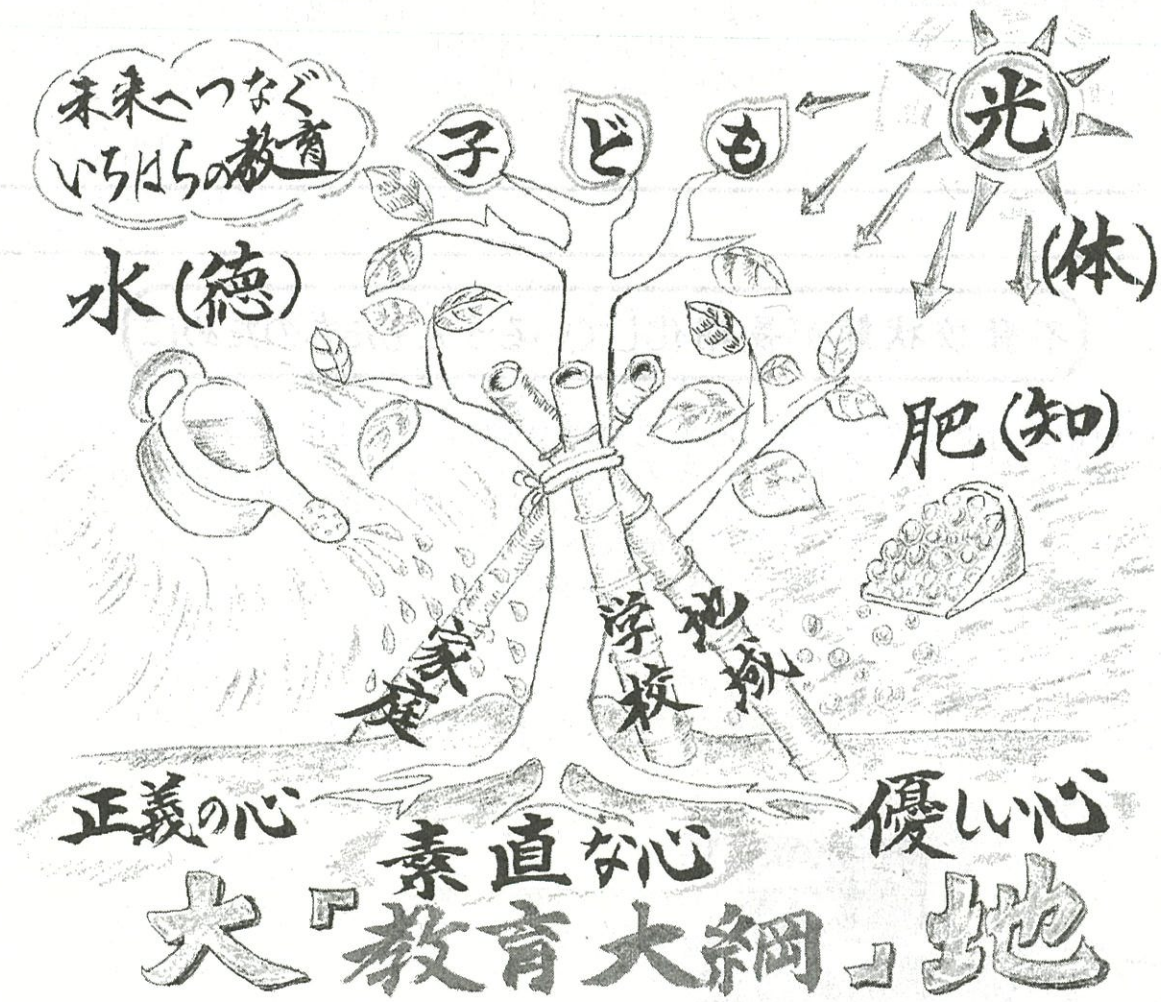 未来へつなぐ
いちはらの教育
子ども
光
(体)
水(徳)
肥(知)
家庭
学校
地域
正義の心
素直な心
優しい心
大「教育大綱」地